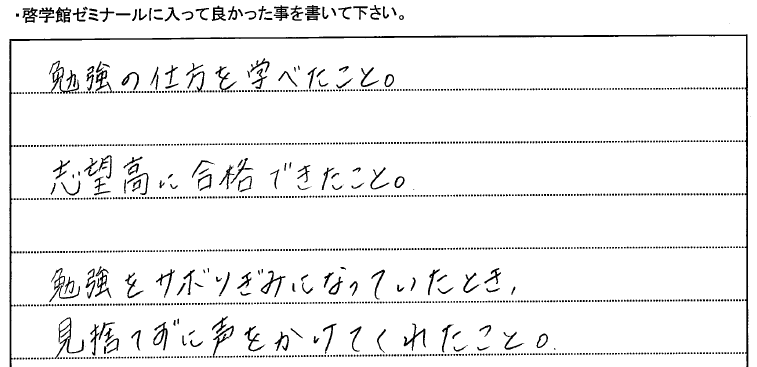 ・啓学館ゼミナールに入って良かった事を書いて下さい。
勉強の仕方を学べたこと。
志望高に合格できたこと。
勉強をサボりぎみになっていたとき,
見捨てずに声をかけてくれたこと。